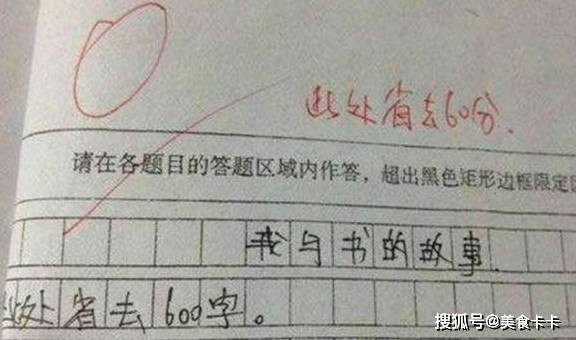 此处省去60分.
请在各题目的答题区域内作答，超出黑色矩形边框限定
我与书的故事.
此处省去600字。
搜狐号@美食卡卡